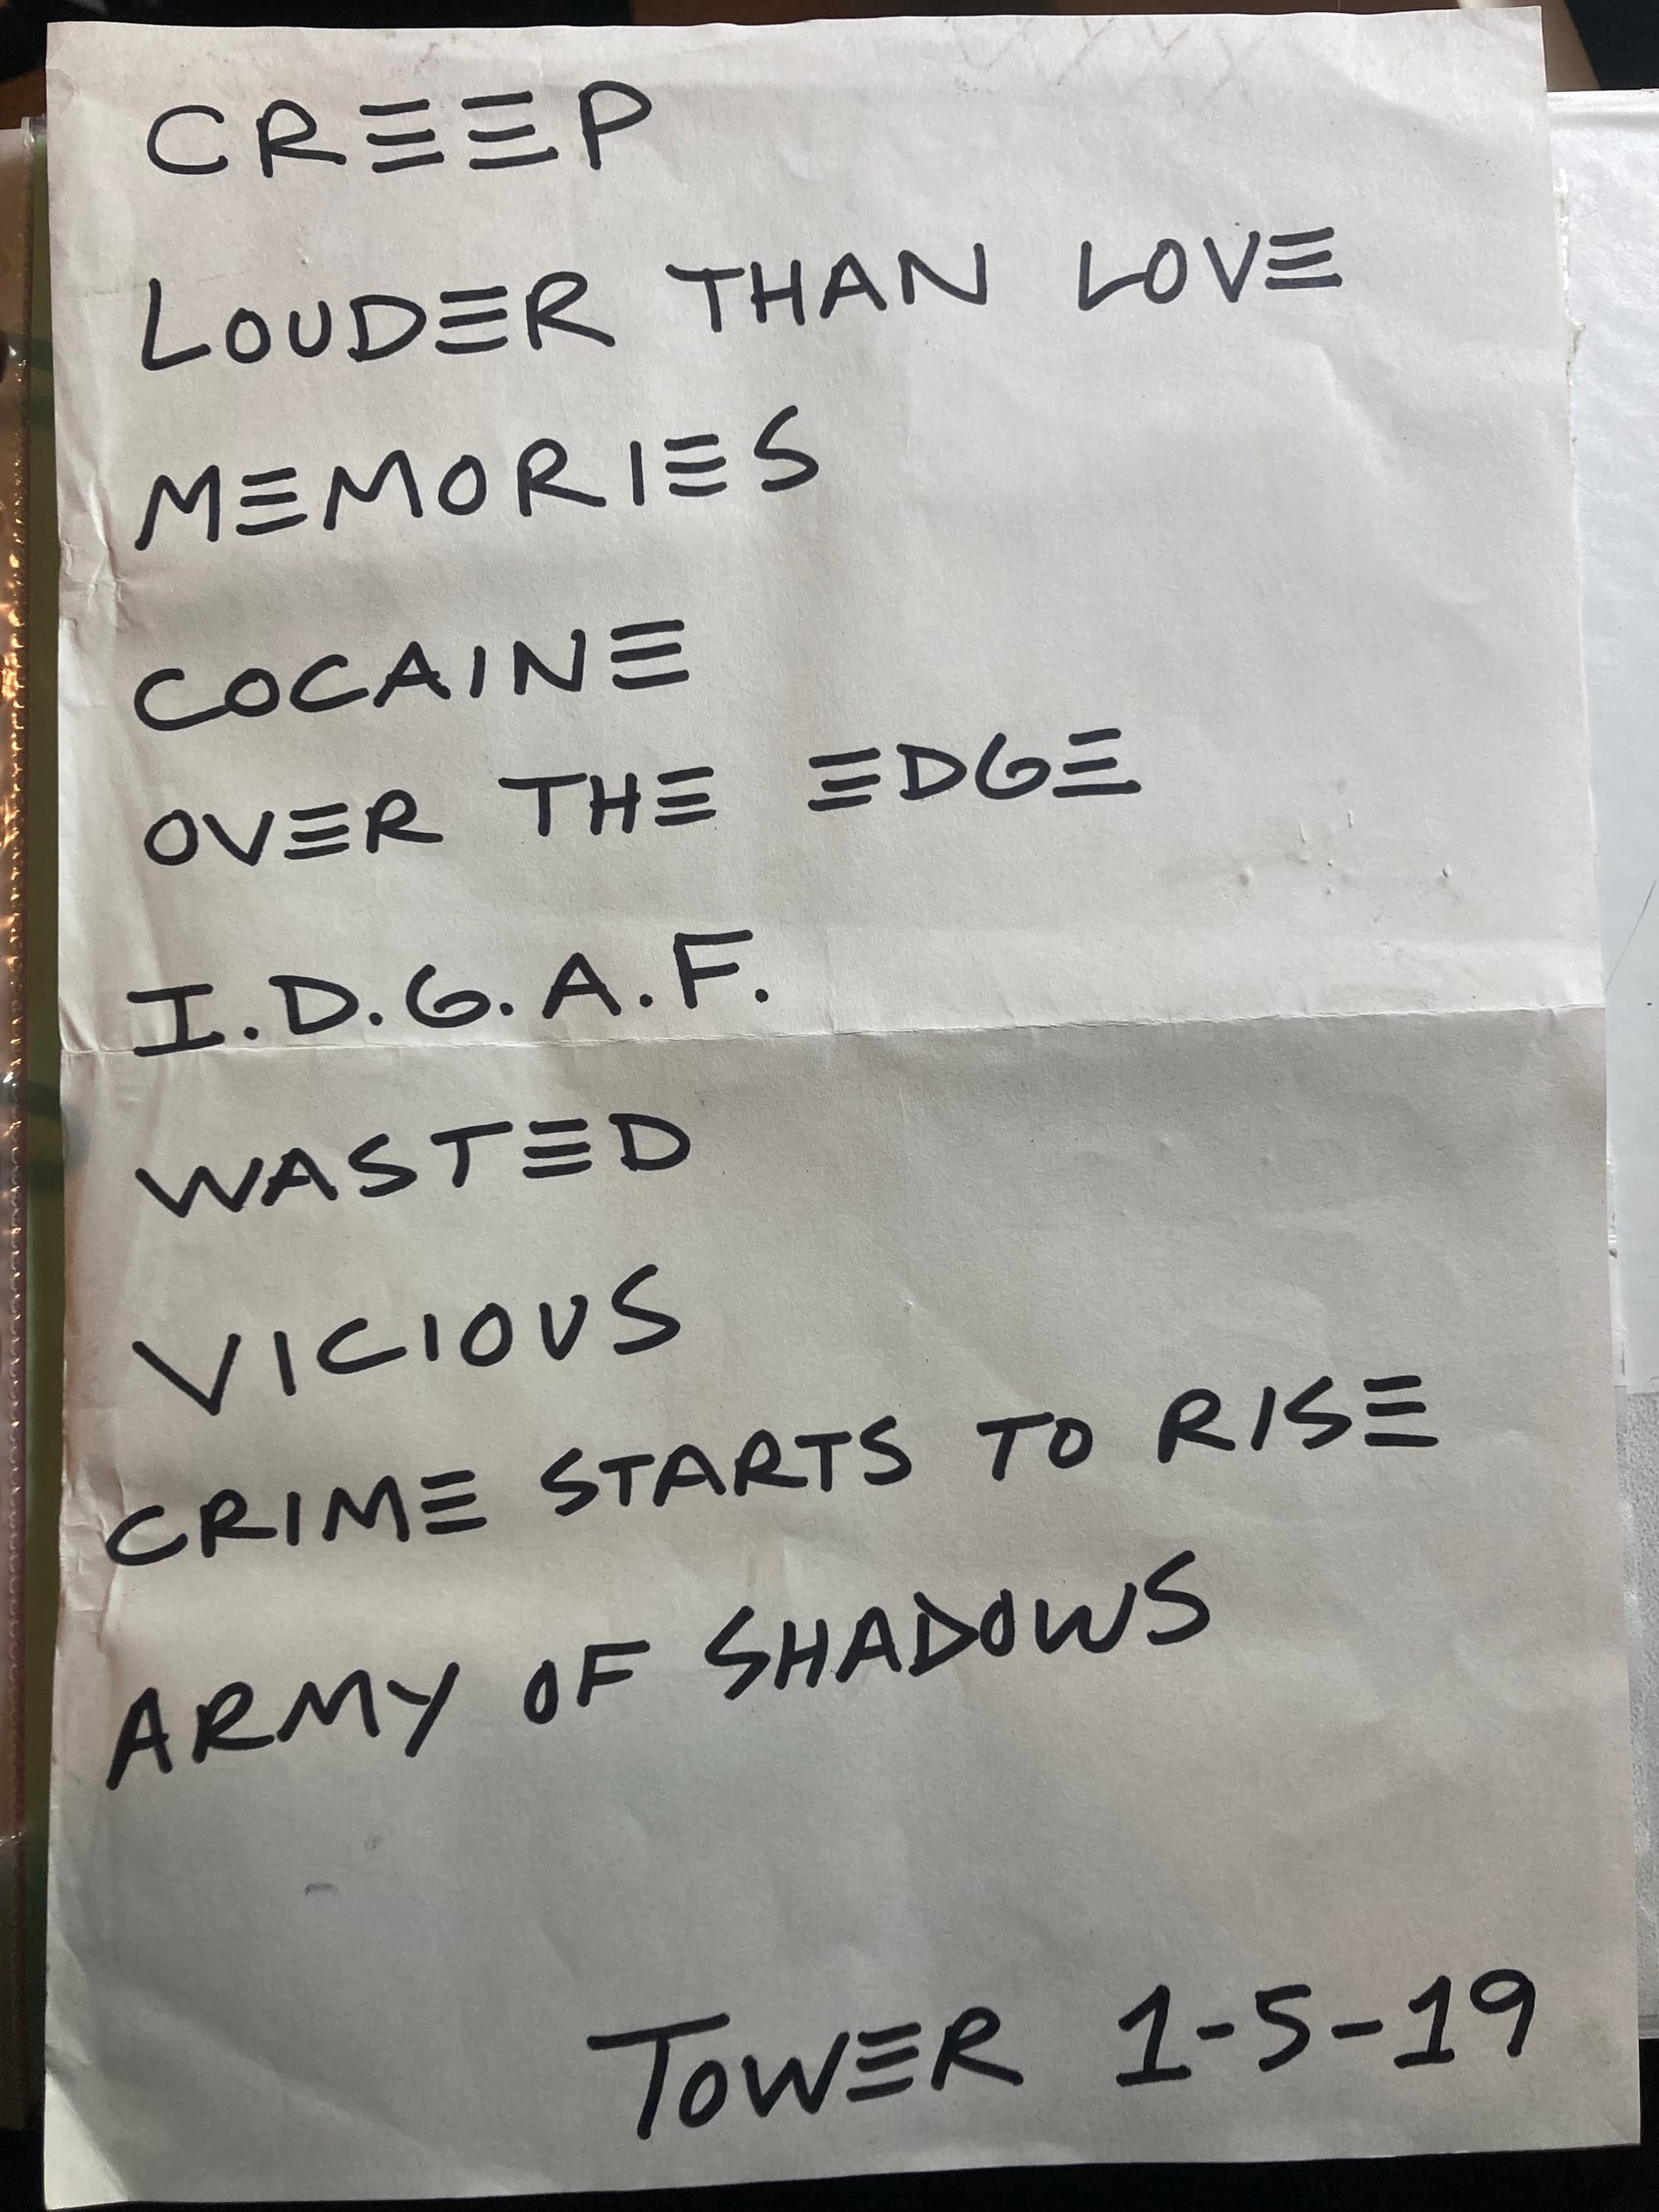 CREEP
LOUDER THAN LOVE
MEMORIES
COCAINE
OVER THE EDGE
I.D.G.A.F.
WASTED
VICIOUS
CRIME STARTS TO RISE
ARMY OF SHADOWS
TOWER 1-5-19